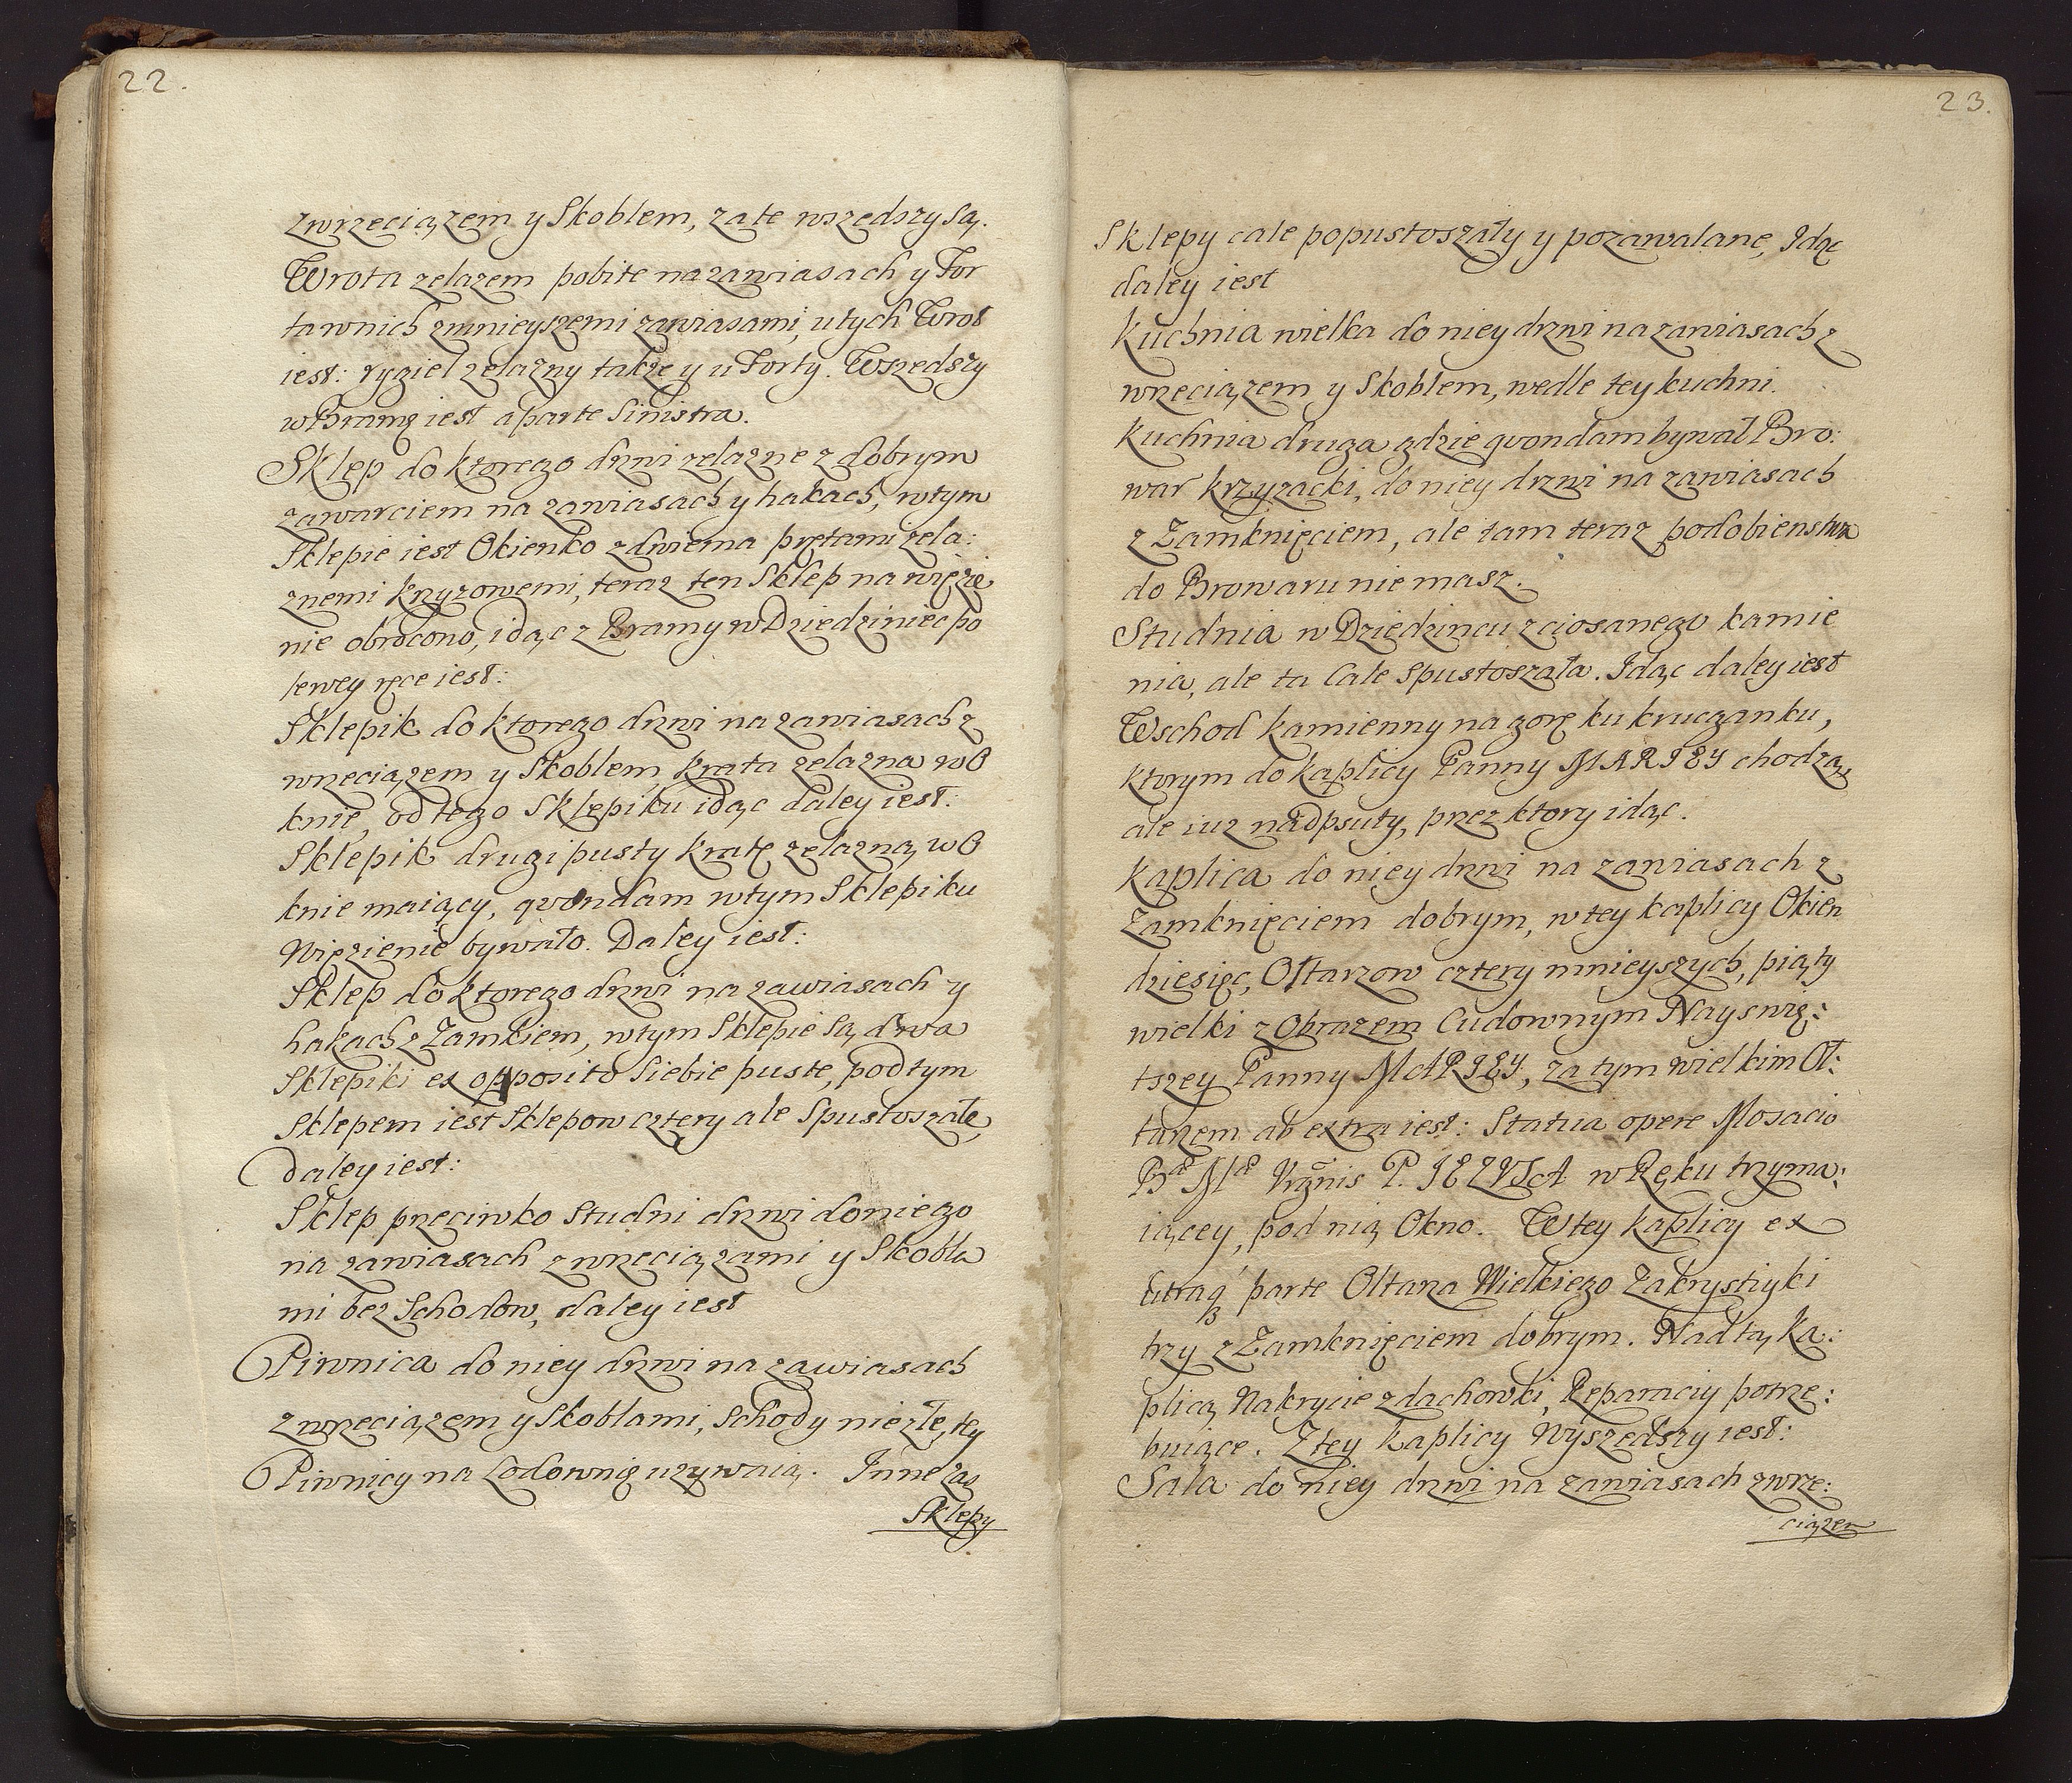 22.
zwrzeciązem y Skoblem, zate wszedszy są.
Wrota zelazem pobite na zawiasach y For
ta wnich zmnieyszemi zawiasami, u tych Wrot
iest: rygiel zelazny także y u Forty. Wszedszy
w Bramę iest a parte Sinistra.
Sklep do ktorego drzwi zelazne z dobrym
zawarciem na zawiasach y hakach, w tym
Sklepie iest Okienko z dwiema prętami zela:
znemi krzyzowemi, teraz ten Sklep na więzie
nie obrocono, idąc z Bramy w Dziedziniec po
lewey ręce iest:
Sklepik do ktorego drzwi na zawiasach z
wrzeciązem y Skoblem, krata zelazna w O
knie, od tego Sklepiku idąc daley iest:
Sklepik drugi pusty kratę zelazną w O
knie maiący, qvondam w tym Sklepiku
Więzienie bywało. Daley iest:
Sklep do ktorego drzwi na zawiasach y
hakach z Zamkiem, w tym Sklepie są dwa
Sklepiki ex opposito Siebie puste, pod tym
Sklepem iest Sklepow cztery ale Spustoszałe,
daley iest:
Sklep przeciwko Studni drzwi do niego
na zawiasach z wrzeciązami y Skobla
mi bez Schodow, daley iest
Piwnica do niey drzwi na zawiasach
z wrzeciązem y Skoblami, Schody niezłe, tey
Piwnicy na Lodownię uzywaią. Inne zas
Sklepy
23.
Sklepy cale popustoszały y pozawalane, Idąc
daley iest
Kuchnia wielka do niey drzwi na zawiasach z
wrzeciązem y Skoblem, wedle tey kuchni.
Kuchnia druga gdzie qvondam bywał Bro:
war krzyzacki, do niey drzwi na zawiasach
z Zamknięciem, ale tam teraz podobienstwa
do Browaru nie masz.
Studnia w Dziedzincu z ciosanego kamie
nia, ale ta Cale Spustoszała. Idąc daley iest
Wschod kamienny na gorę ku kruczganku,
ktorym do kaplicy Panny MARIEY chodzą,
ale iuz nadpsuty, przez ktory idąc.
Kaplica do niey drzwi na zawiasach z
Zamknięciem dobrym, w tey kaplicy Okien
dziesięc, Ołtarzow cztery mnieyszych, piąty
wielki z Obrazem Cudownym Nayswię:
tszey Panny MARIEY, za tym wielkim Oł:
tarzem ab extra iest: Statua opere Mosacio
Bæ Mæ Vrgnis P. IEZVSA w Ręku trzyma:
iącey, pod nią Okno. W tey kaplicy ex
Utraqz parte Oltarza Wielkiego Zakrystiyki
trzy z Zamknięciem dobrym. Nad tą Ka:
plicą Nakrycie z dachowki, Reparaciy potrze:
buiące. Z tey Kaplicy Wyszedszy iest:
Sala do niey drzwi na zawiasach zwrze:
ciązem